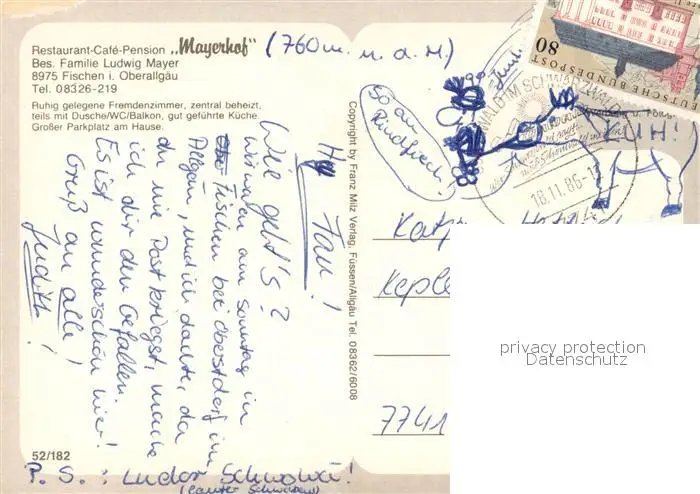 Restaurant-Café-Pension „Mayerhof"
Bes. Familie Ludwig Mayer
8975 Fischen i. Oberallgäu
Tel. 08326-219
Ruhig gelegene Fremdenzimmer, zentral beheizt,
teils mit Dusche/WC/Balkon, gut geführte Küche
Großer Parkplatz am Hause.
(760m. ü. d. M.)
So ein
Rindviech!
Wie geht's?
Wir waren am Sonntag in
Fischen bei Oberstdorf im
Allgäu, und ich dachte, da
du nie Post kriegst, mache
ich dir den Gefallen.
Es ist wunderschön hier!
Gruß an alle!
Judith!
52/182
P. S.: Schwowä!
(lauter Schwaben)
Copyright by Franz Milz Verlag, Füssen/Allgäu Tel. 08362/6008
80
DEUTSCHE BUNDESPOST
WALD IM SCHWARZWALD
18.11.86-1
Kat
Keple
7741
privacy protection
Datenschutz